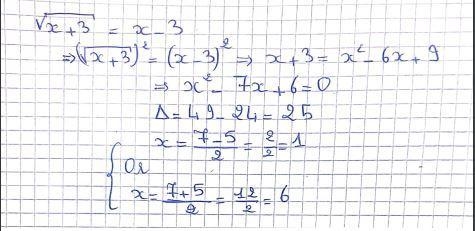 √(x+3) = x-3
⇒(√(x+3))² = (x-3)² ⇒ x+3 = x²-6x+9
⇒ x²-7x+6=0
Δ=49-24=25
x = (7-5)/2 = 2/2 = 1
Or
x = (7+5)/2 = 12/2 = 6